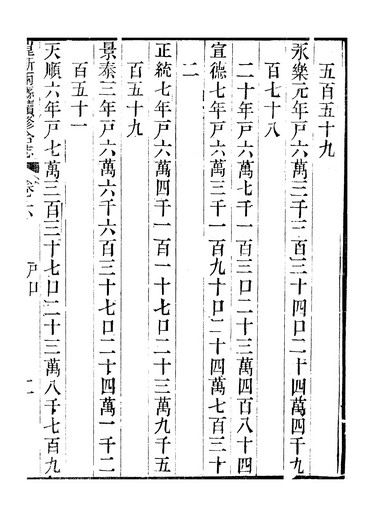 五百五十九
永樂元年戸六萬三千三百三十四口二十四萬四千九
百七十八
二十年戸六萬七千一百三口二十三萬四百八十四
宣德七年戸六萬三千一百九十口二十四萬七百三十
二
正統七年戸六萬四千一百一十七口二十三萬九千五
百五十九
景泰三年戸六萬六千六百三十七口二十四萬一千二
百五十一
天順六年戸七萬三百三十七口二十三萬八千七百九
兩縣續修合志 卷之六 戸口 二